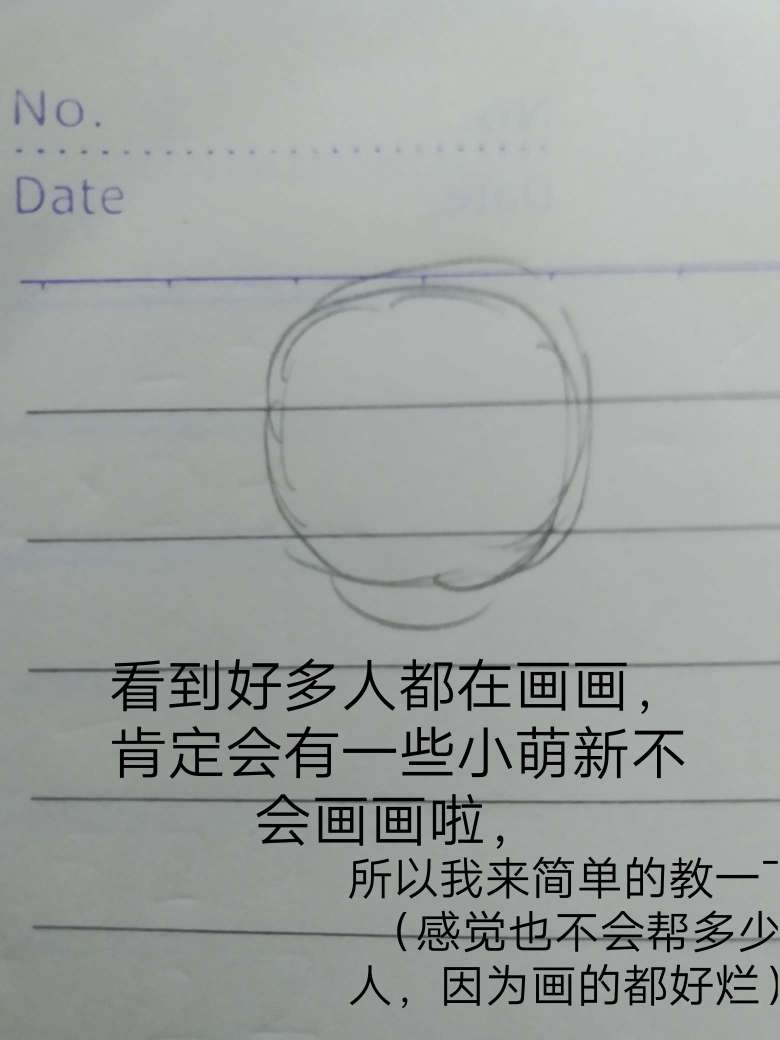 No.
Date
看到好多人都在画画，
肯定会有一些小萌新不
会画画啦，
所以我来简单的教一
（感觉也不会帮多少
人，因为画的都好烂）